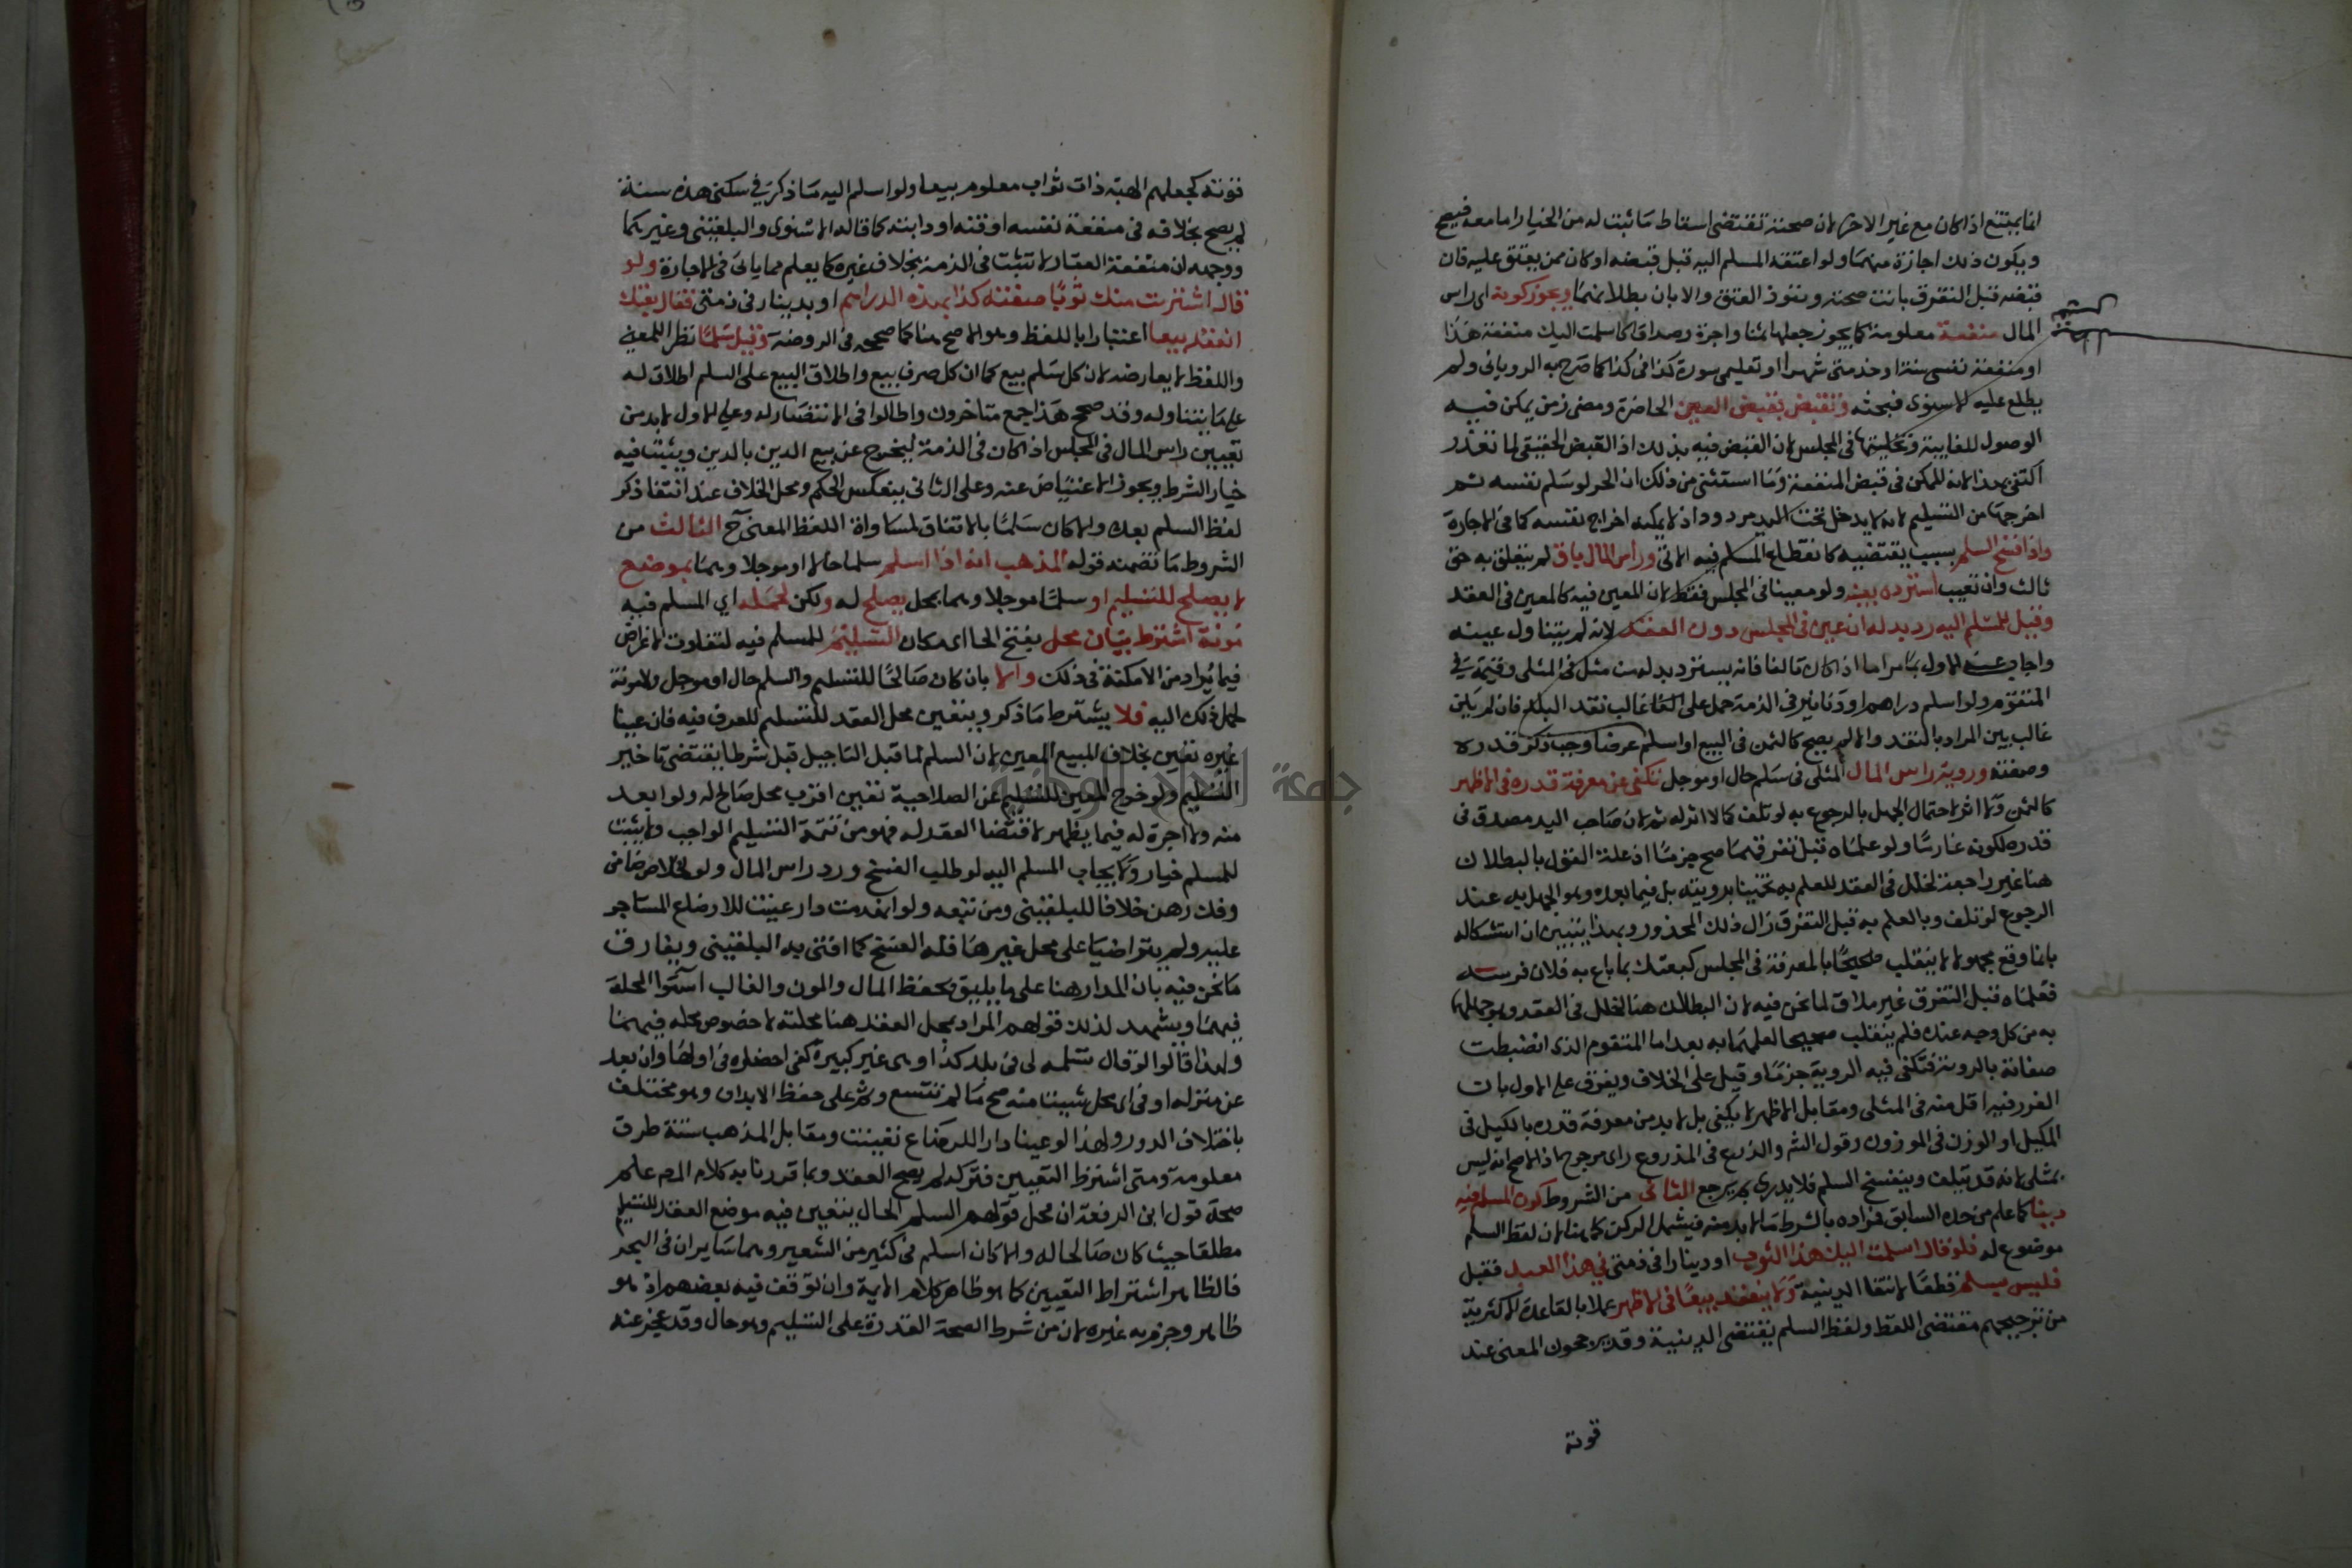 انما يمتنع اذا كان مع غير الاخر لان صحته تقتضى اسقاط ما ثبت له من الخيار اما معه فيصح
ويكون ذلك اجازة منهما ولو اعتقه المسلم اليه قبل قبضه او كان ممن يعتق عليه فان
قبضه قبل التفرق بانت صحته ونفوذ العتق والا بان بطلانهما ويجوز كونه اى راس
المال منفعة معلومة كما يجوز جعلها ثمنا واجرة وصداقا كاسلمت اليك منفعة هذا
او منفعة نفسى سنة او خدمتى شهرا او تعليمى سورة كذا فى كذا كما صرح به الرويانى ولم
يطلع عليه الاسنوى فبحثه وتقبض بقبض العين الحاضرة ومضى زمن يمكن فيه
الوصول للغايبة وتخليتها فى المجلس لان القبض فيه بذلك اذ القبض الحقيقى لما تعذر
اكتفى بهذا لانه الممكن فى قبض المنفعة وما استثنى من ذلك ان الحر لو سلم نفسه ثم
اخرجها من التسليم لانه لا يدخل تحت اليد مردود اذ لا يمكنه اخراج نفسه كما فى الاجارة
واذا فسخ السلم بسبب يقتضيه كانقطاع المسلم فيه الاتى وراس المال باق لم يتعلق به حق
ثالث وان تعيب استرده بعينه ولو معينا فى المجلس فقط لان المعين فيه كالمعين فى العقد
وقيل للمسلم اليه رد بدله ان عين فى المجلس دون العقد لانه لم يتناول عينه
واجاب عنه الاول بما مر اما اذا كان تالفا فانه يسترد بدله من مثل فى المثلى وقيمة فى
المتقوم ولو اسلم دراهم او دنانير فى الذمة حمل على الغالب نقد البلد فان لم يكن
غالب بين المراد بالنقد والا لم يصح كالثمن فى البيع او اسلم عرضا وجب ذكر قدره
وصفته وروية راس المال المثلى فى سلم حال او موجل تكفى عن معرفة قدره فى الاظهر
كالثمن ولا اثر لاحتمال الجهل بالرجوع به لو تلف كما لا اثر له ثم لان صاحب اليد مصدق فى
قدره لكونه غارما ولو علماه قبل تفرقهما صح جزما اذ علة القول بالبطلان
هنا غير راجعة لخلل فى العقد للعلم به تخمينا برويته بل فيما بعده وهو الجهل به عند
الرجوع لو تلف وبالعلم به قبل التفرق زال ذلك المحذور وبهذا يتبين ان استشكاله
بان ما وقع مجهولا لا ينقلب صحيحا بالمعرفة فى المجلس كبعتك بما باع به فلان فرسه
فعلماه قبل التفرق غير ملاق لما نحن فيه لان البطلان هنا لخلل فى العقد وهو جهلهما
به من كل وجه عنده فلم ينقلب صحيحا لعلمهما به بعد اما المتقوم الذى انضبطت
صفاته بالروية فتكفى فيه الروية جزما وقيل على الخلاف ويفرق على الاول بان
الغرر فيه اقل منه فى المثلى ومقابل الاظهر لا يكفى بل لا بد من معرفة قدره بالكيل فى
المكيل او الوزن فى الموزون وقول الشم والذرع فى المذروع راى مرجوح اذ الاصح انه ليس
بمثلى لانه قد يتلف وينفسخ السلم فلا يدرى بم يرجع الثانى من الشروط كون المسلم فيه
دينا كما علم من حده السابق فمراده بالشرط ما لا بد منه فيشمل الركن كما هنا لان لفظ السلم
موضوع له فلو قال اسلمت اليك هذا الثوب او دينارا فى ذمتى فى هذا العبد فقبل
فليس بسلم قطعا لانتفا الدينية ولا ينعقد بيعا فى الاظهر عملا بالقاعدة الاكثرية
من ترجيحهم مقتضى اللفظ ولفظ السلم يقتضى الدينية وقد يرجحون المعنى عند
قوته
قوته كجعلهم الهبة ذات ثواب معلوم بيعا ولو اسلم اليه ما ذكر فى سكنى هذه سنة
لم يصح بخلافه فى منفعة نفسه او قنه او دابته كما قاله الاسنوى والبلقينى وغيرهما
ووجهه ان منفعة العقار لا تثبت فى الذمة بخلاف غيره كما يعلم مما ياتى فى الاجارة ولو
قال اشتريت منك ثوبا صفته كذا بهذه الدراهم او بدينار فى ذمتى فقال بعتك
انعقد بيعا اعتبارا باللفظ وهو الاصح هنا كما صححه فى الروضة وقيل سلما نظرا للمعنى
واللفظ لا يعارضه لان كل سلم بيع كما ان كل صرف بيع واطلاق البيع على السلم اطلاق له
على ما يتناوله وقد صحح هذا جمع متاخرون واطالوا فى الانتصار له وعلى الاول لا بد من
تعيين راس المال فى المجلس اذا كان فى الذمة ليخرج عن بيع الدين بالدين ويثبت فيه
خيار الشرط ويجوز الاعتياض عنه وعلى الثانى ينعكس الحكم ومحل الخلاف عند انتفا ذكر
لفظ السلم بعده والا كان سلما بالاتفاق لمساواة اللفظ المعنى ح الثالث من
الشروط ما تضمنه قوله المذهب انه اذا اسلم سلما حالا او موجلا وهما بموضع
لا يصلح للتسليم او سلما موجلا وهما بمحل يصلح له ولكن لحمله اي المسلم فيه
مونة اشترط بيان محل بفتح الحا اى مكان التسليم للمسلم فيه لتفاوت الاغراض
فيما يراد من الامكنة فى ذلك والا بان كان صالحا للتسليم والسلم حال او موجل ولا مونة
لحمل ذلك اليه فلا يشترط ما ذكر ويتعين محل العقد للتسليم للعرف فيه فان عينا
غيره تعين بخلاف المبيع المعين لان السلم لما قبل التاجيل قبل شرطا يقتضى تاخير
التسليم ولو خرج المعين للتسليم عن الصلاحية تعين اقرب محل صالح له ولو ابعد
منه ولا اجرة له فيما يظهر لاقتضا العقد له فهو من تتمة التسليم الواجب ولا يثبت
للمسلم خيار ولا يجاب المسلم اليه لو طلب الفسخ ورد راس المال ولو لخلاص ضامن
وفك رهن خلافا للبلقينى ومن تبعه ولو انهدمت دار عينت للارضاع المستاجر
عليه ولم يتراضيا على محل غيرها فله الفسخ كما افتى به البلقينى ويفارق
ما نحن فيه بان المدار هنا على ما يليق بحفظ المال والمون والغالب استوا المحلة
فيهما ويشهد لذلك قولهم المراد بمحل العقد هنا محلته لا خصوص محله فيهما
ولهذا قالوا لو قال تسلمه لى فى بلد كذا وهى غير كبيرة كفى احضاره فى اولها وان بعد
عن منزله او فى اى محل شيت منه صح ما لم تتسع وثم على حفظ الابدان وهو مختلف
باختلاف الدور ولهذا لو عينا دارا للرضاع تعينت ومقابل المذهب ستة طرق
معلومة ومتى اشترط التعيين فتركه لم يصح العقد وبما قررنا به كلام المص علم
صحة قول ابن الرفعة ان محل قولهم السلم الحال يتعين فيه موضع العقد للتسليم
مطلقا حيث كان صالحا له والا كان اسلم فى كثير من الشعير وهما سايران فى البحر
فالظاهر اشتراط التعيين كما هو ظاهر كلام الايمة وان توقف فيه بعضهم اذ هو
ظاهر وجزم به غيره لان من شرط الصحة القدرة على التسليم وهو حال وقد عجز عنه
جامعة النجاح الوطنية